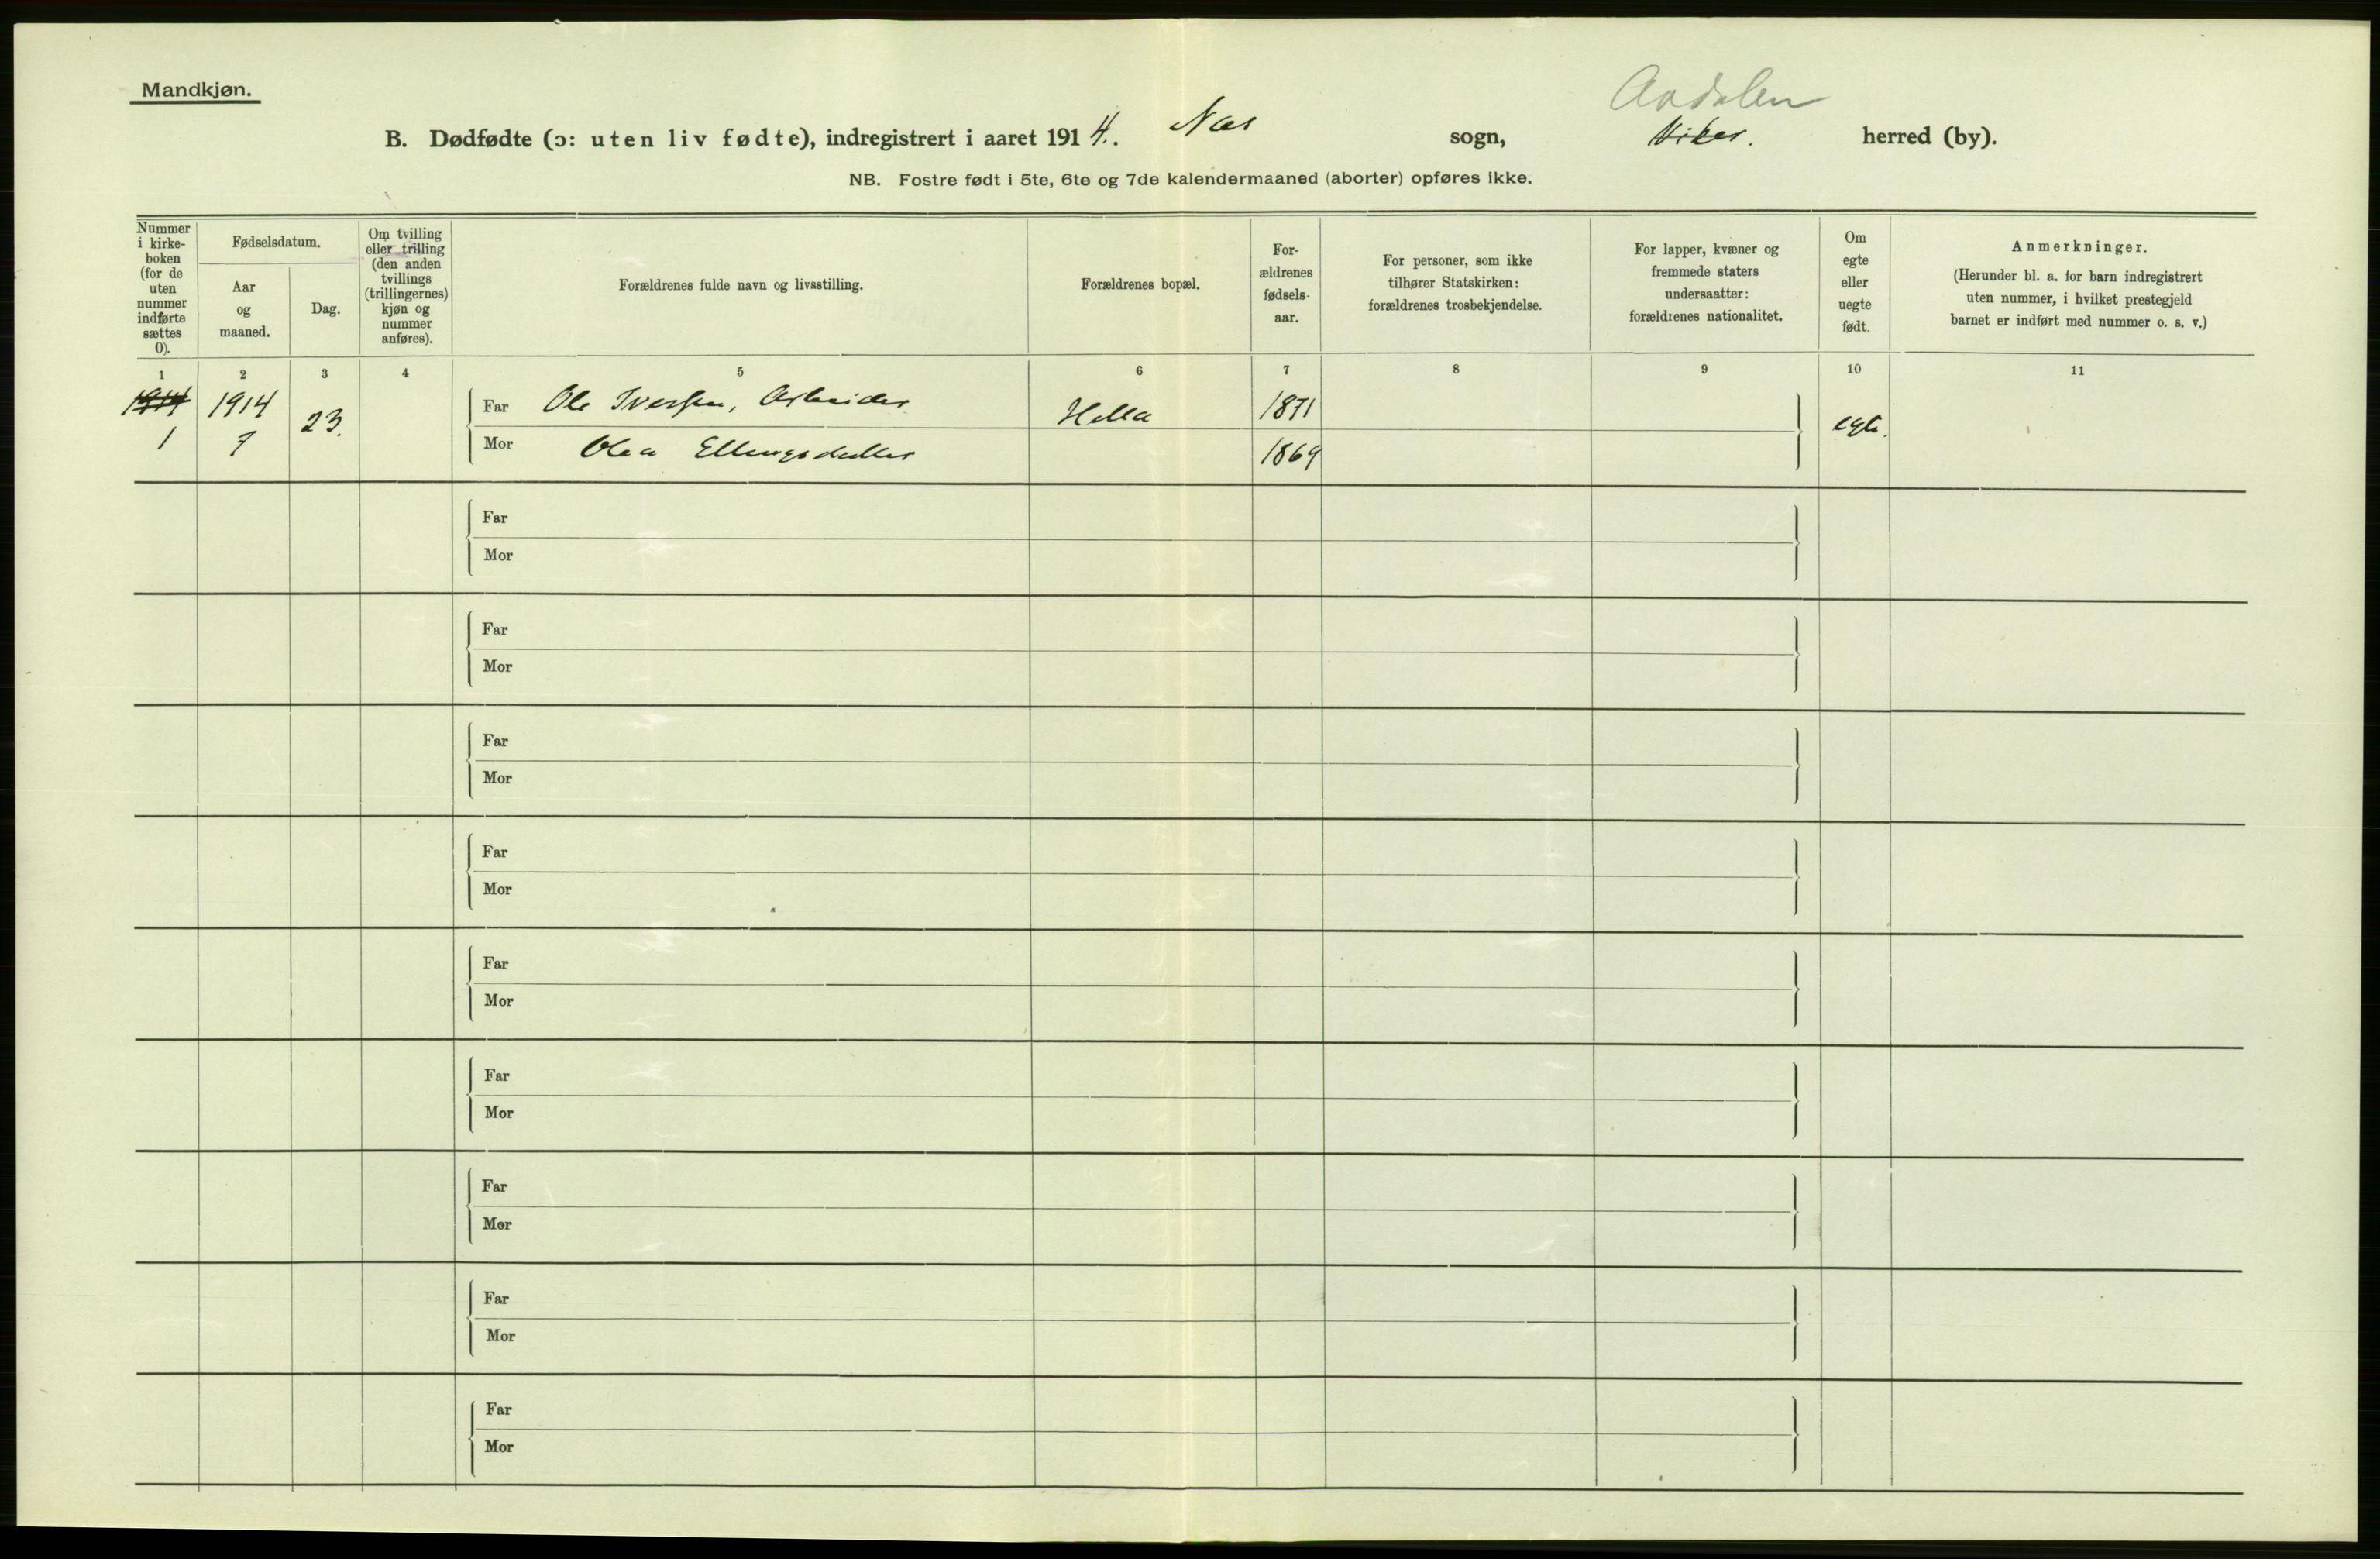 Mandkjøn.
Aadalen
B. Dødfødte (ɔ: uten liv fødte), indregistrert i aaret 1914. Næs sogn, Viker. herred (by).
NB. Fostre født i 5te, 6te og 7de kalendermaaned (aborter) opføres ikke.
Nummer
i kirke-
boken
(for de
uten
nummer
indførte
sættes
0).
Fødselsdatum.
Aar
og
maaned.
Dag.
Om tvilling
eller trilling
(den anden
tvillings
(trillingernes)
kjøn og
nummer
anføres).
Forældrenes fulde navn og livsstilling.
Forældrenes bopæl.
For-
ældrenes
fødsels-
aar.
For personer, som ikke
tilhører Statskirken:
forældrenes trosbekjendelse.
For lapper, kvæner og
fremmede staters
undersaatter:
forældrenes nationalitet.
Om
egte
eller
uegte
født.
Anmerkninger.
(Herunder bl. a. for barn indregistrert
uten nummer, i hvilket prestegjeld
barnet er indført med nummer o. s. v.)
1 2 3 4 5 6 7 8 9 10 11
1914 1914 23. Far Ole Iversen, Arbeider Hella 1871 egte.
1 7 Mor Olea Ellingsdatter 1869
Far
Mor
Far
Mor
Far
Mor
Far
Mor
Far
Mor
Far
Mor
Far
Mor
Far
Mor
Far
Mor